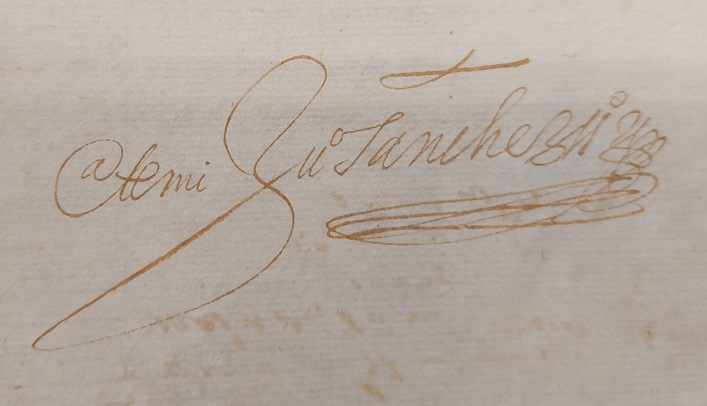 Ate mi Juº Sanchez